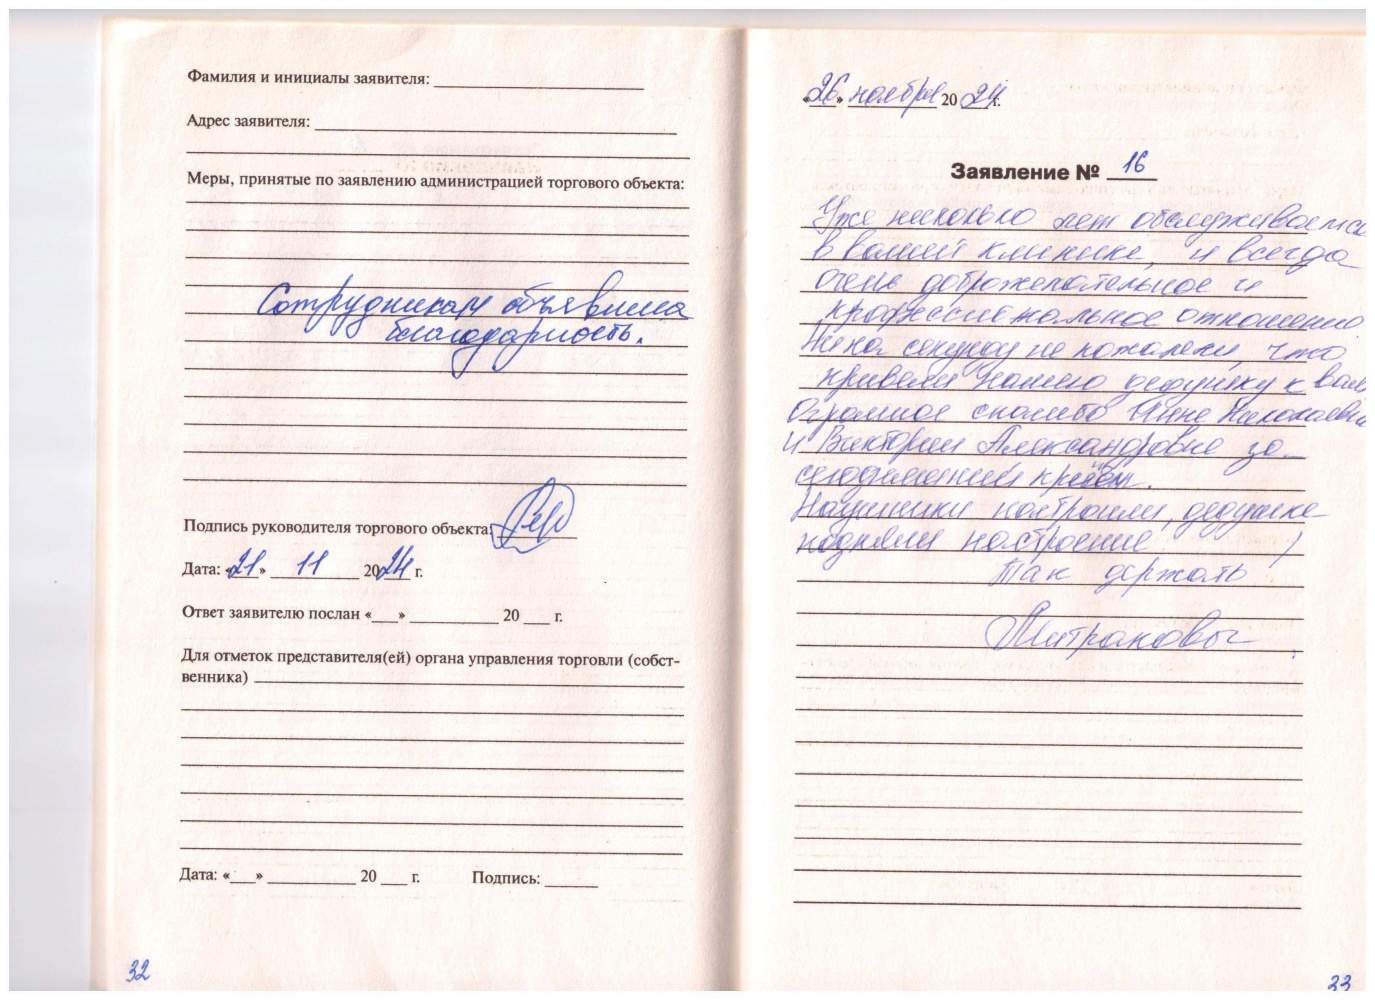 Фамилия и инициалы заявителя:
Адрес заявителя:
Меры, принятые по заявлению администрацией торгового объекта:
Сотрудникам объявлена
благодарность.
Подпись руководителя торгового объекта:
Дата: «21» 11 2024 г.
Ответ заявителю послан «___» ______ 20 ___ г.
Для отметок представителя(ей) органа управления торговли (собст-
венника)
Дата: «___» ______ 20 ___ г. Подпись:
32
«26» ноября 2024 г.
Заявление № 16
Уже несколько лет обслуживаемся
в вашей клинике, и всегда
очень доброжелательное и
профессиональное отношение
Ни на секунду не пожалели, что
привели нашего дедушку к вам
Огромное спасибо Инне Николаевне
и Виктории Александровне за
сегодняшний приём.
Наушники настроили, дедушке
подняли настроение )
Так держать
Митраковы.
33